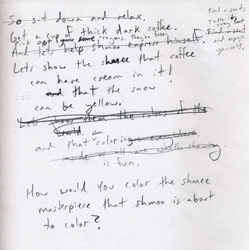 So sit down and relax.
Get a cup of thick dark coffee.
And lets help shmoo express himself.
Lets show the shmee that coffee
can have cream in it!
and that the snow
can be yellow.
Lets show them the colors of the
and that coloring
is fun.
How would you color the shmee
masterpiece that shmoo is about
to color?
Find a seat,
Take it easy
Find a seat
and express
yourself.